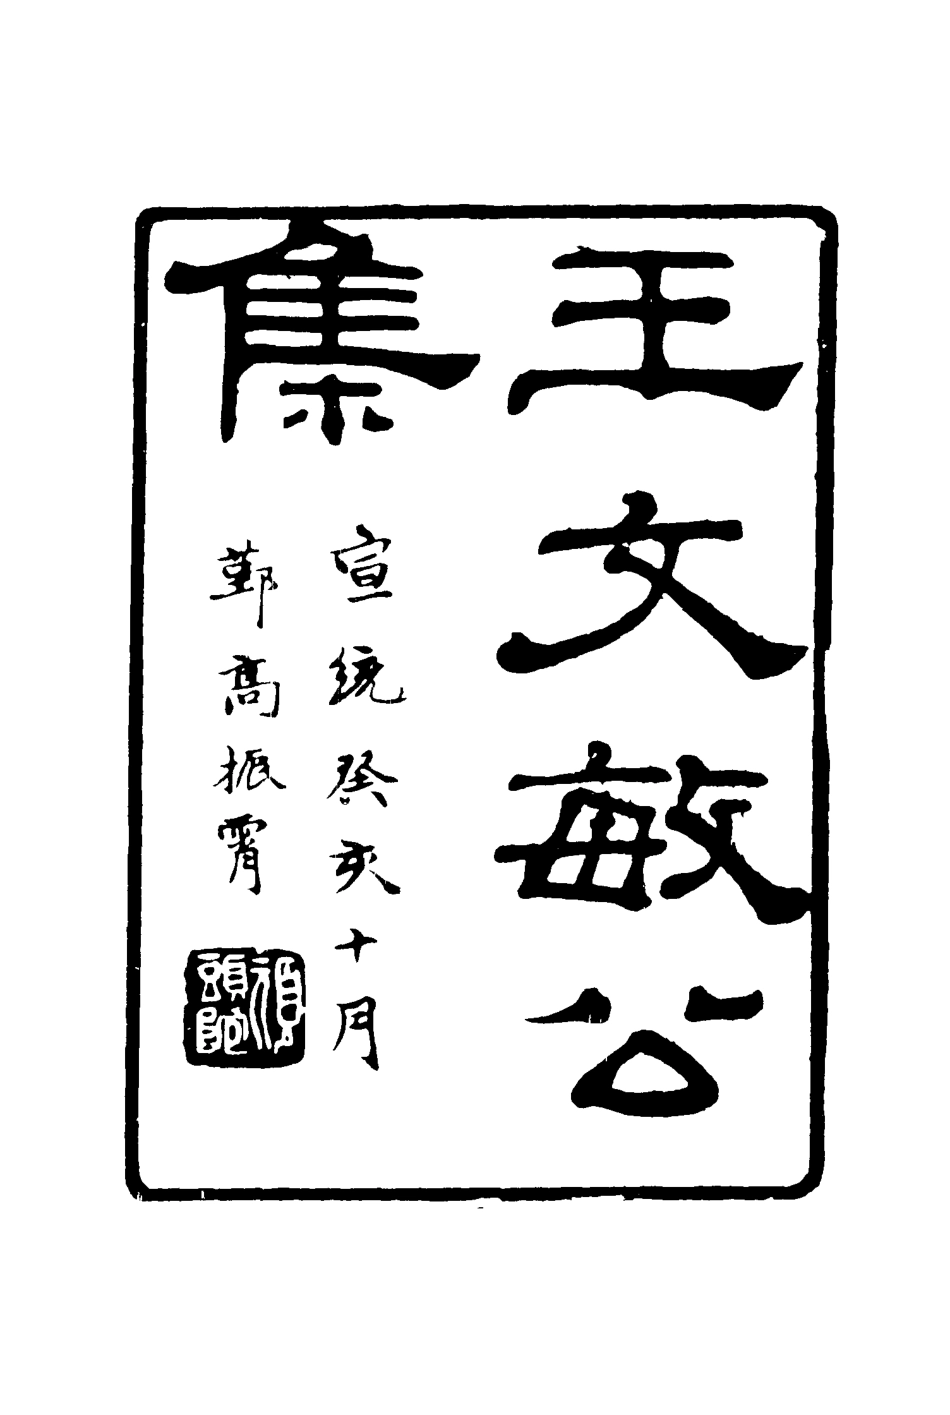 王文敏公
集
宣統癸亥十月
鄞高振霄